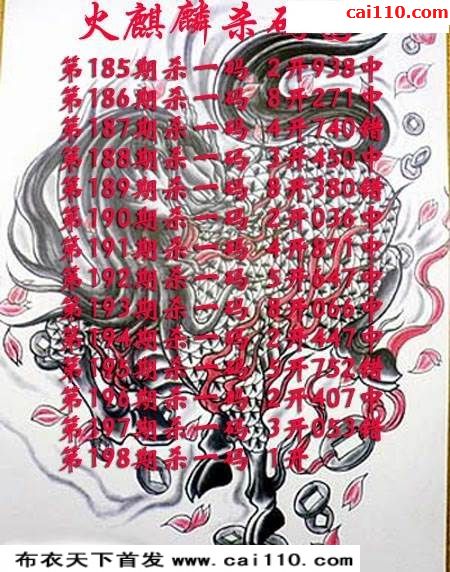 cai110.com
火麒麟杀码
第185期杀一码 2开938中
第186期杀一码 8开271中
第187期杀一码 4开740错
第188期杀一码 3开450中
第189期杀一码 8开380错
第190期杀一码 2开036中
第191期杀一码 4开871中
第192期杀一码 5开647中
第193期杀一码 8开066中
第194期杀一码 2开447中
第195期杀一码 5开752错
第196期杀一码 2开407中
第197期杀一码 3开053错
第198期杀一码 1开
布衣天下首发 www.cai110.com